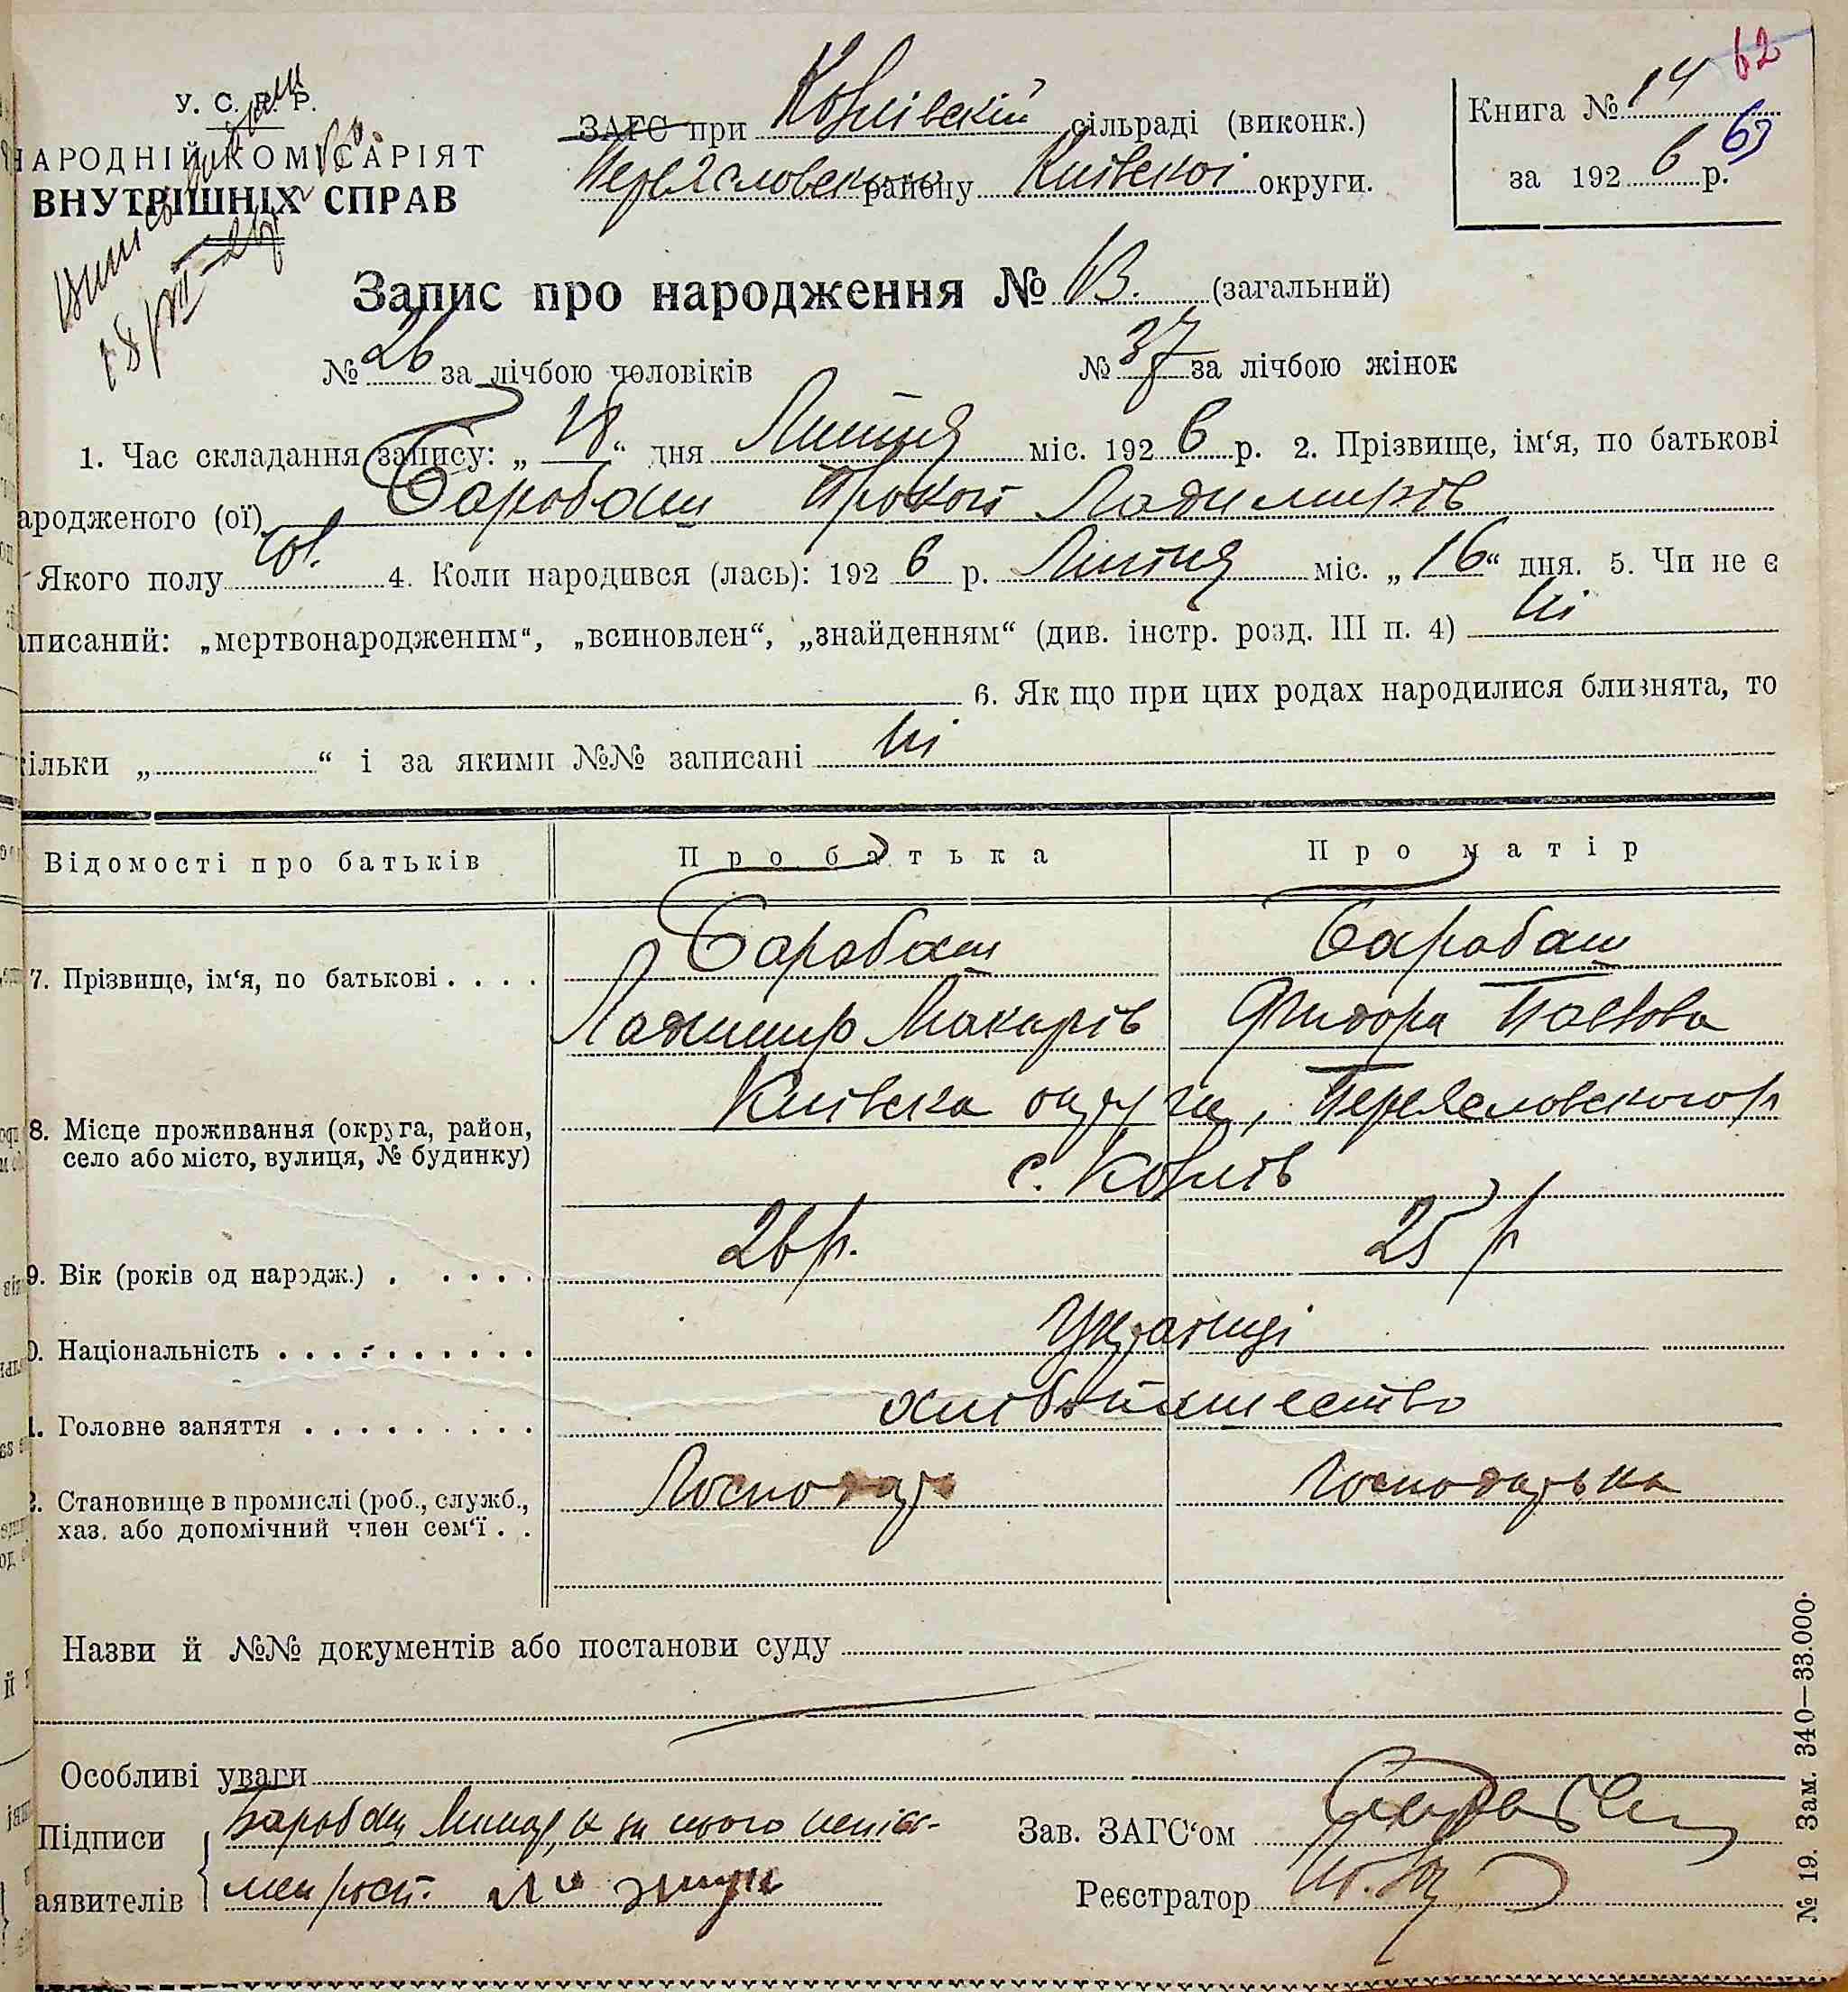 62
У. С. Р. Р.
ЗАГС при Ковлівскій сільраді (виконк.)
Книга № 14
63
НАРОДНІЙ КОМІСАРІЯТ
Переяславськ району Київскоі округи.
за 1926 р.
ВНУТРІШНІХ СПРАВ
18/VII-26р
Запис про народження № 63. (загальний)
№ 26 за лічбою чоловіків № 37 за лічбою жінок
1. Час складання запису: „18“ дня Липня міс. 1926 р. 2. Прізвище, ім‘я, по батькові
ародженого (ої) Барабаш Прокоп Ладимирів
Якого полу чол. 4. Коли народився (лась): 1926 р. Липня міс. „16“ дня. 5. Чи не є
писаний: „мертвонародженим“, „всиновлен“, „знайденням“ (див. інстр. розд. III п. 4) ні
6. Як що при цих родах народилися близнята, то
ільки „ “ і за якими №№ записані ні
Відомості про батьків Про батька Про матір
Барабаш Барабаш
7. Прізвище, ім‘я, по батькові . . . .
Ладимир Макарів Фидора Павлова
Київска округи, Переясловского р
8. Місце проживання (округа, район,
село або місто, вулиця, № будинку)
с. Ковлів
26 р. 25 р
9. Вік (років од народж.) . . . . .
0. Національність . . . . . . . . . . Українці
1. Головне заняття . . . . . . . . . хлібопашество
2. Становище в промислі (роб., служб., Господар Господарька
хаз. або допомічний член сем‘ї . .
Назви й №№ документів або постанови суду
Особливі уваги
Підписи Барабаш за нього непись-
Зав. ЗАГС‘ом
аявителів мен рост.
Реєстратор
№ 19. Зам. 340—33.000.